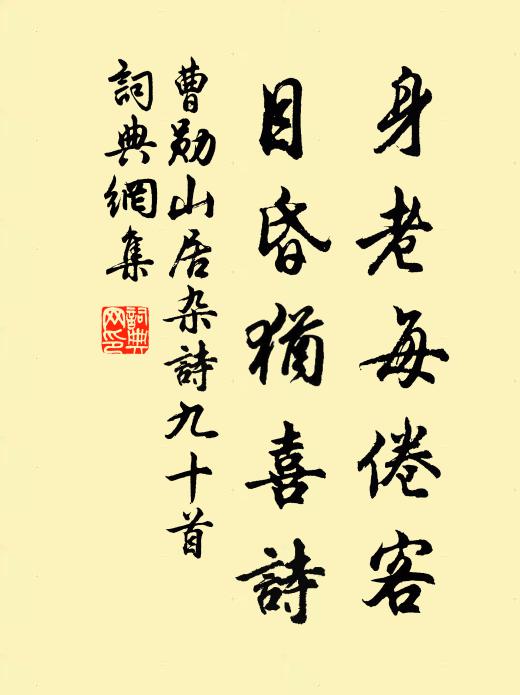 身老每倦客
目昏猶喜詩
曹勛山居杂詩九十首
詞典網集
詞典網印